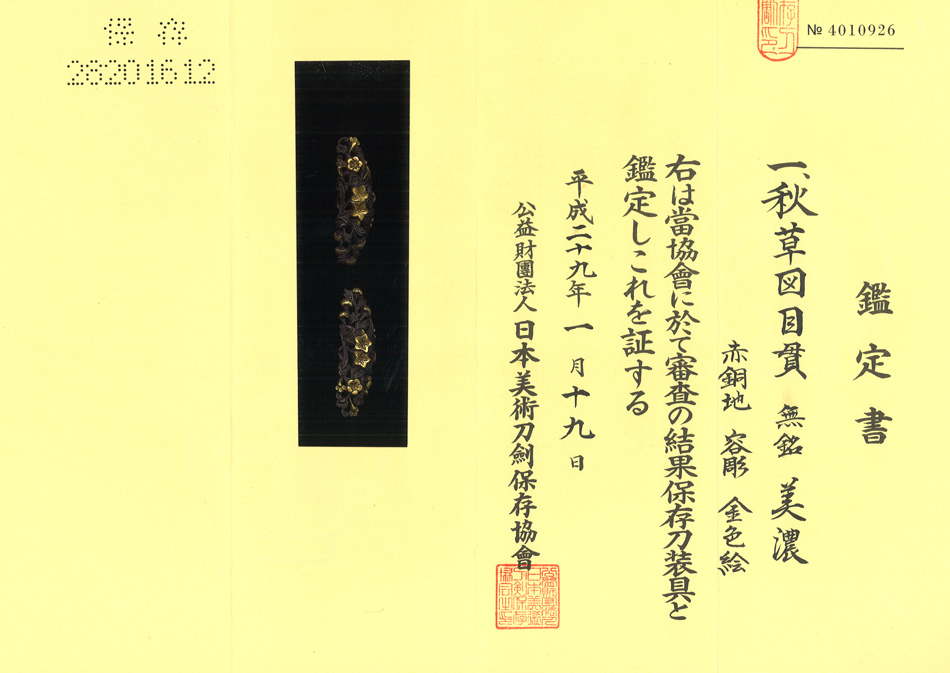 鑑定書
一、秋草図目貫 無銘 美濃
赤銅地 容彫 金色絵
右は當協會に於て審査の結果保存刀装具と
鑑定しこれを証する
平成二十九年一月十九日
公益財團法人 日本美術刀剣保存協會
№ 4010926
保存
28201612